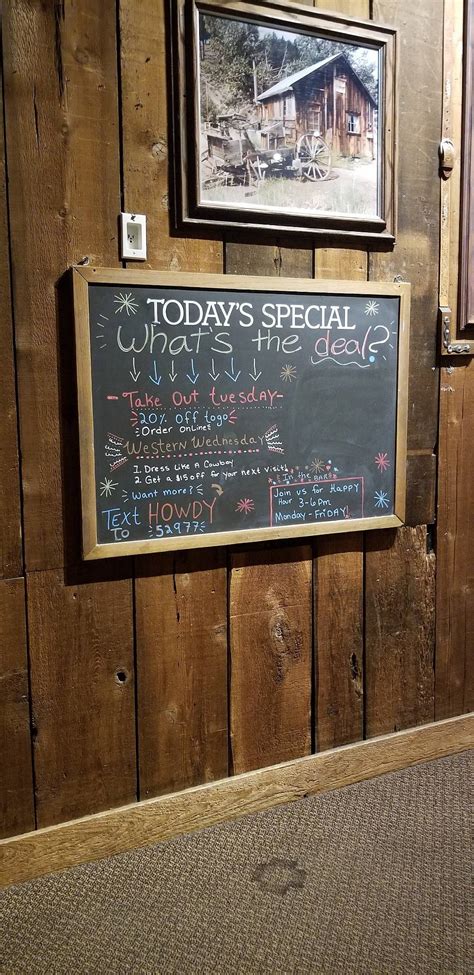 TODAY'S SPECIAL
What's the deal?
- Take Out tuesday -
20% Off togo
: Order Online!!
Western Wednesday
1. Dress Like A Cowboy
2. Get a $15 for your next visit!
Want more?
TEXT HOWDY
TO 52977
In the BAR
Join us for HAPPY
Hour 3-6pm
Monday - FRIDAY!